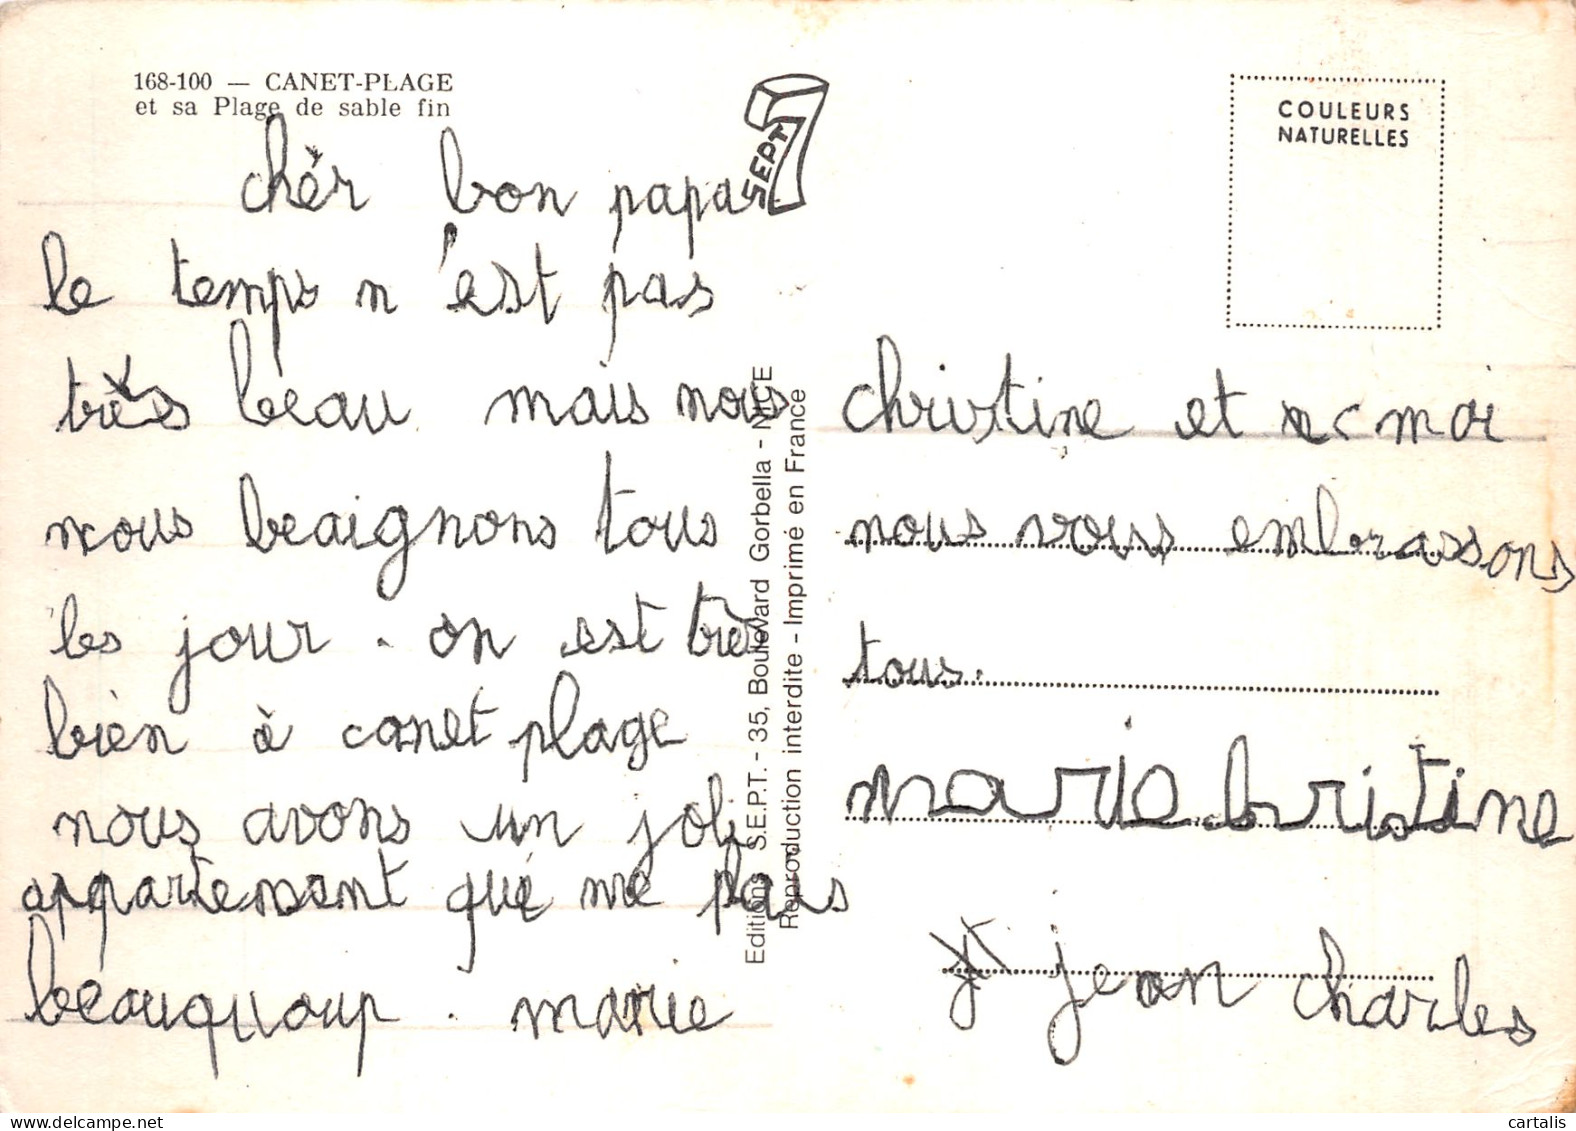 168-100 — CANET-PLAGE
et sa Plage de sable fin
chèr bon papa
le temps n'est pas
très beau mais nous
nous beaignons tous
les jour. on est très
bien à canet plage
nous avons un joli
appartenent que me plais
beauquoup. marie
SEPT
Editions S.E.P.T. - 35, Boulevard Gorbella - NICE
Reproduction interdite - Imprimé en France
COULEURS
NATURELLES
christine et moi
nous vous embrassons
tous.
marie christine
jean charles
cartalis